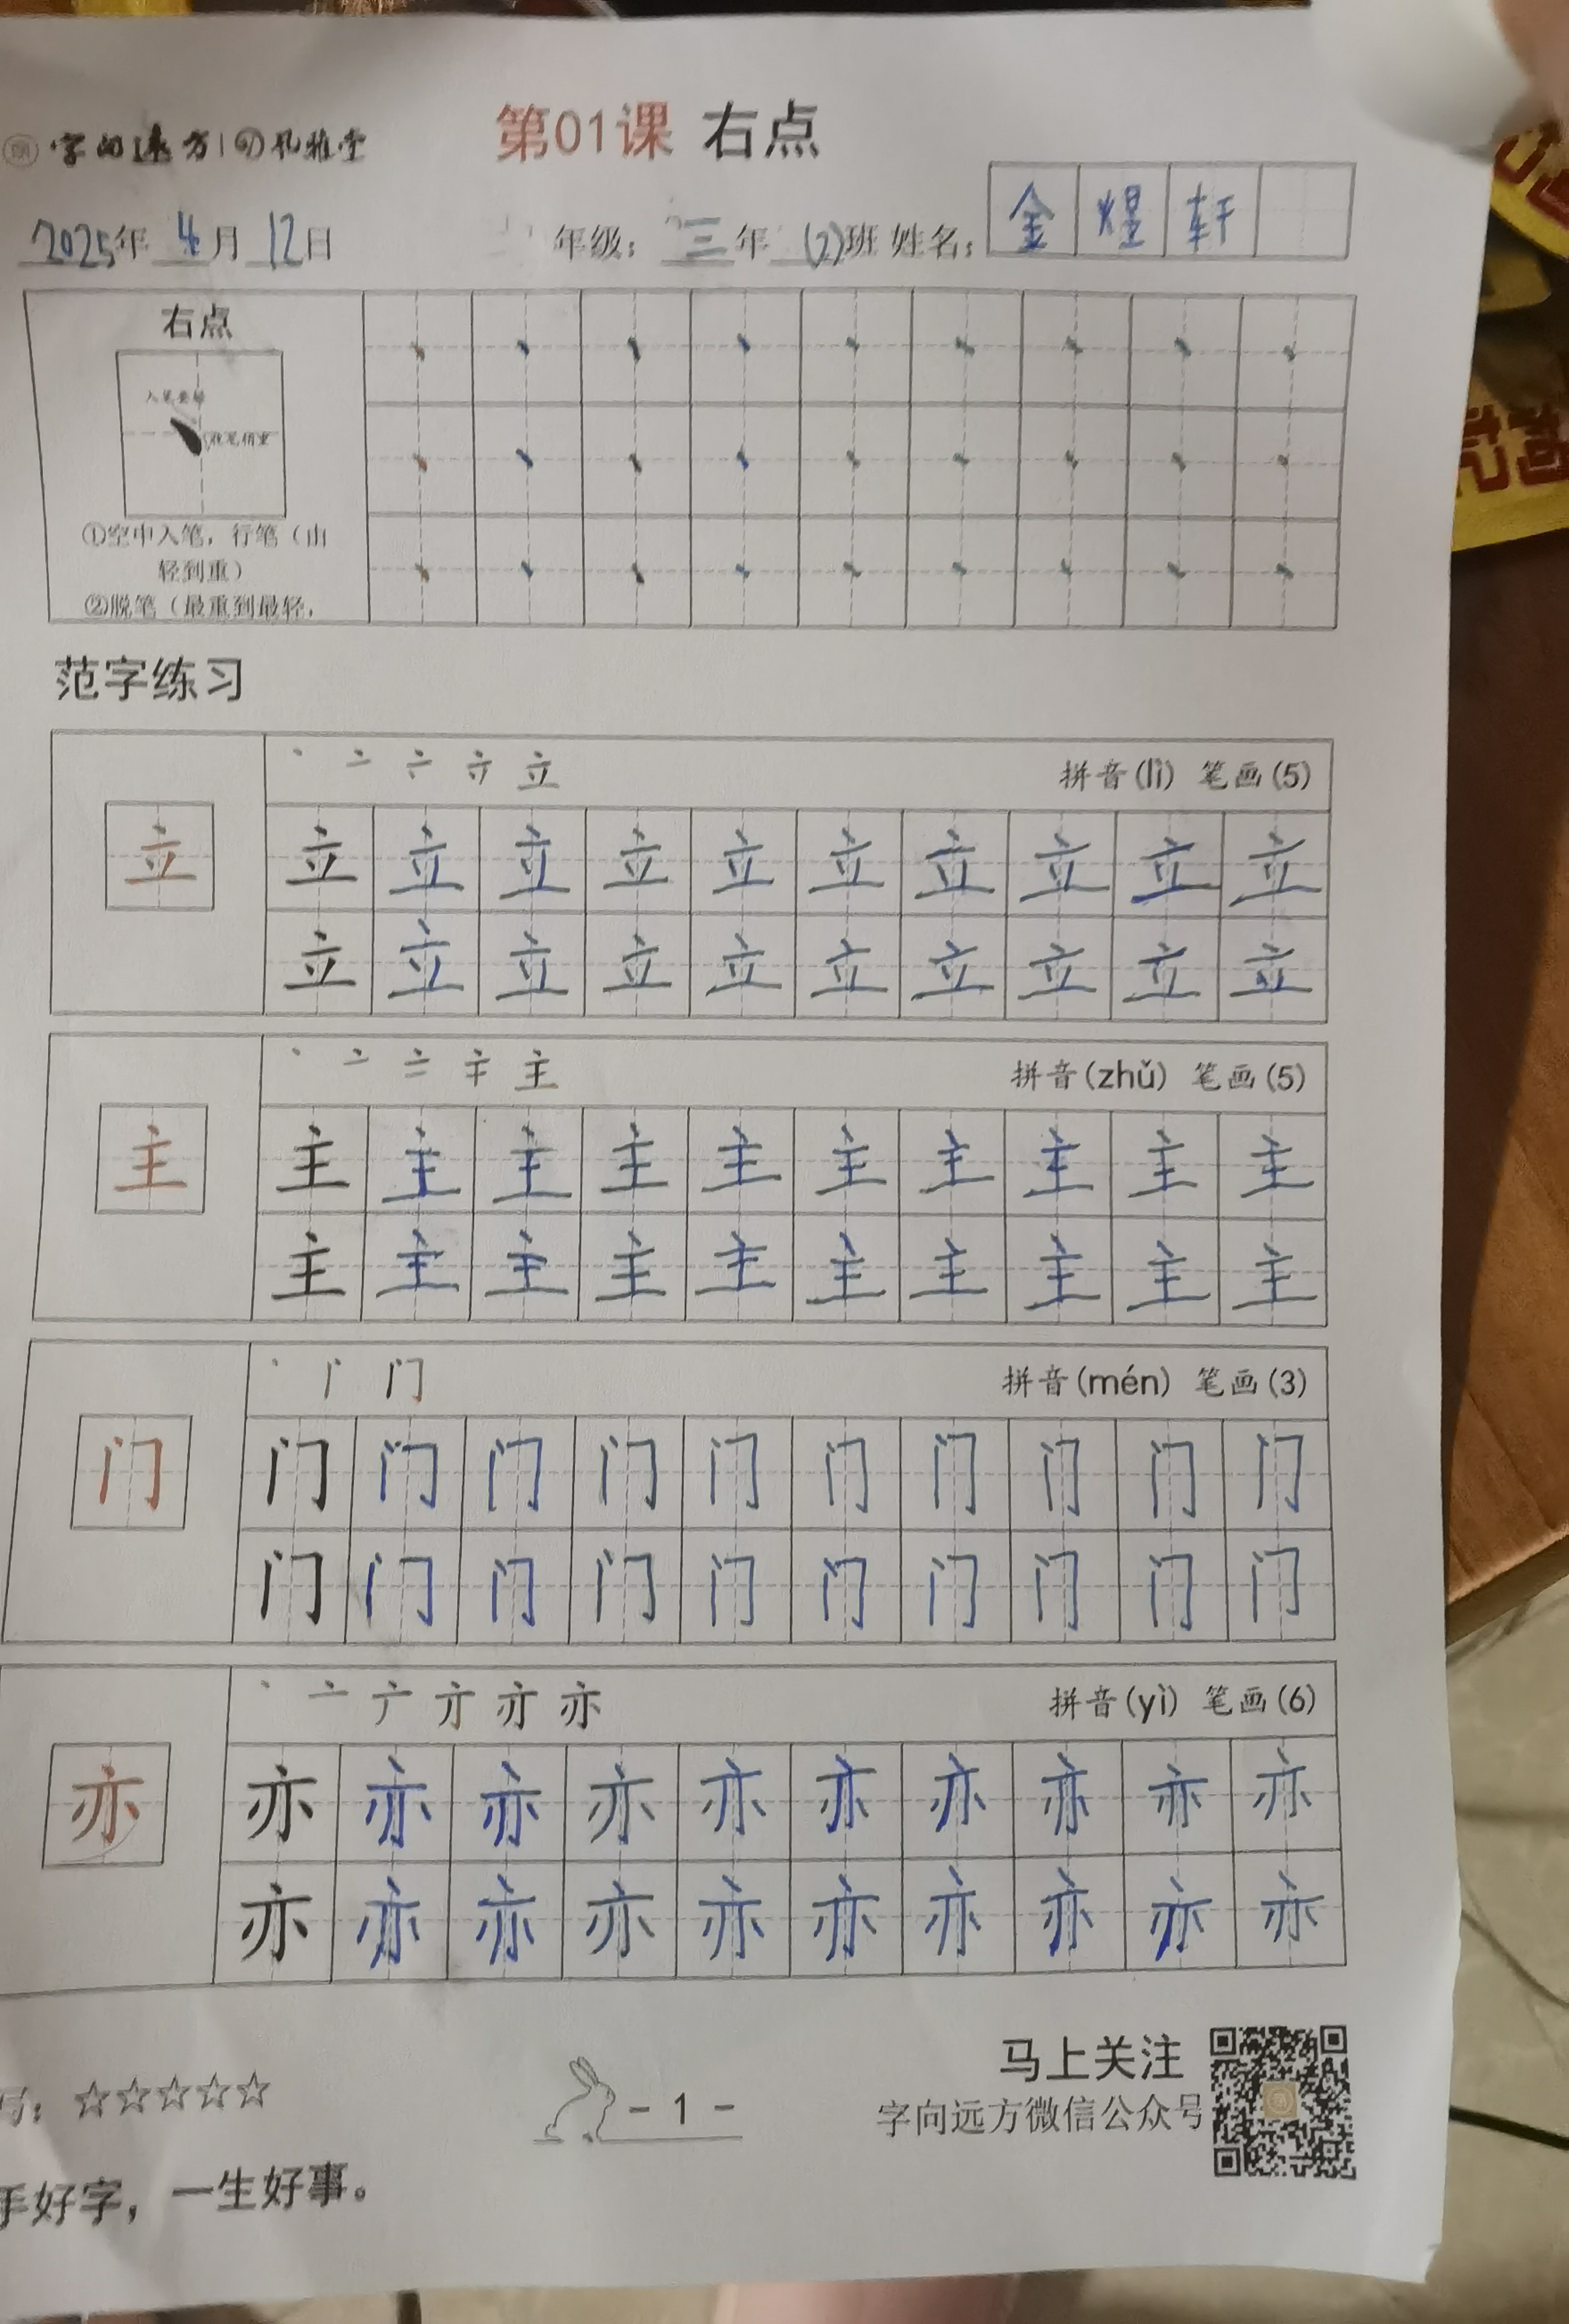 字向远方 孔雅堂
第01课 右点
2025年 4月 12日 年级：三年 (2)班 姓名：金煜轩
右点
入笔要轻
收笔稍重
①空中入笔，行笔（由
轻到重）
②脱笔（最重到最轻，
范字练习
立 拼音(lì) 笔画(5)
立 立 立 立 立 立 立 立 立 立 立
立 立 立 立 立 立 立 立 立 立
主 拼音(zhǔ) 笔画(5)
主 主 主 主 主 主 主 主 主 主 主
主 主 主 主 主 主 主 主 主 主
门 拼音(mén) 笔画(3)
门 门 门 门 门 门 门 门 门 门 门
门 门 门 门 门 门 门 门 门 门
亦 拼音(yì) 笔画(6)
亦 亦 亦 亦 亦 亦 亦 亦 亦 亦 亦
亦 亦 亦 亦 亦 亦 亦 亦 亦 亦
写：☆☆☆☆☆
- 1 -
马上关注
字向远方微信公众号
手好字，一生好事。